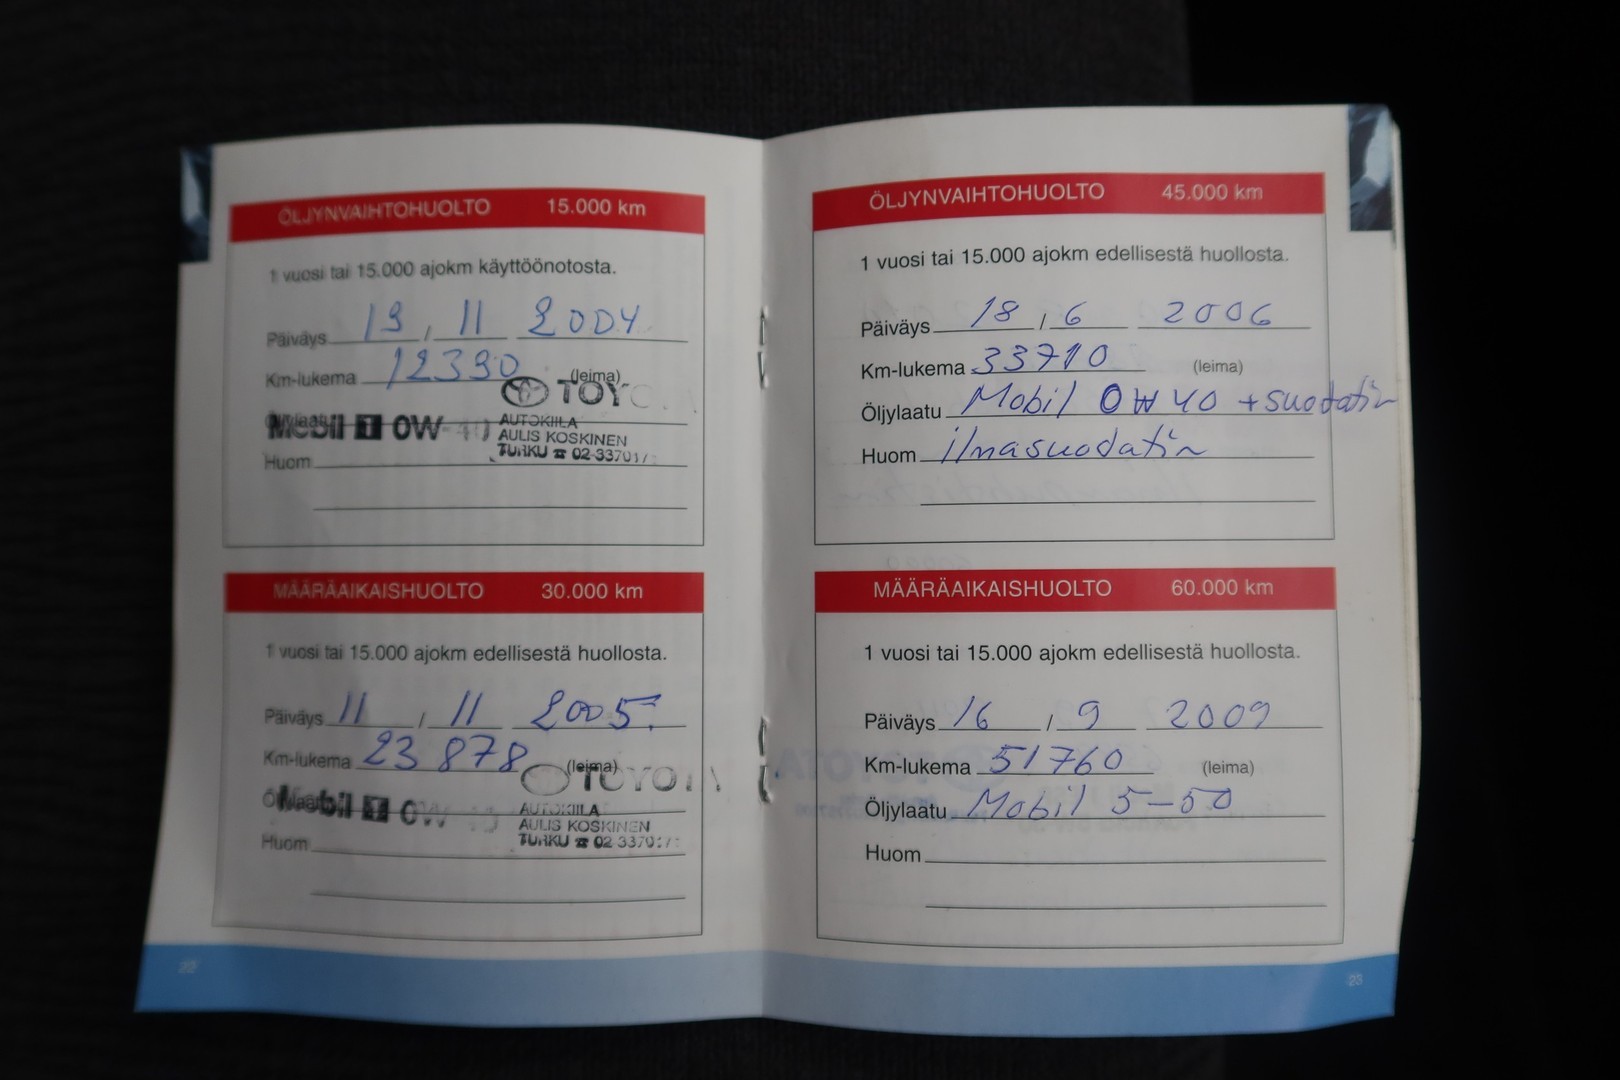 ÖLJYNVAIHTOHUOLTO 15.000 km
1 vuosi tai 15.000 ajokm käyttöönotosta.
Päiväys 19 , 11 2004
Km-lukema 12390 (leima)
TOYO
Öljylaatu Mobil 1 0W-40
AUTOKIILA
AULIS KOSKINEN
TURKU ☎ 02-33701
Huom
MÄÄRÄAIKAISHUOLTO 30.000 km
1 vuosi tai 15.000 ajokm edellisestä huollosta.
Päiväys 11 , 11 2005
Km-lukema 23 878 (leima)
TOYOTA
Öljylaatu Mobil 1 0W-40
AUTOKIILA
AULIS KOSKINEN
TURKU ☎ 02-33701
Huom
22
ÖLJYNVAIHTOHUOLTO 45.000 km
1 vuosi tai 15.000 ajokm edellisestä huollosta.
Päiväys 18 , 6 2006
Km-lukema 33710 (leima)
Öljylaatu Mobil 0W40 +suodatin
Huom ilmasuodatin
MÄÄRÄAIKAISHUOLTO 60.000 km
1 vuosi tai 15.000 ajokm edellisestä huollosta.
Päiväys 16 , 9 2009
Km-lukema 51760 (leima)
Öljylaatu Mobil 5-50
Huom
23